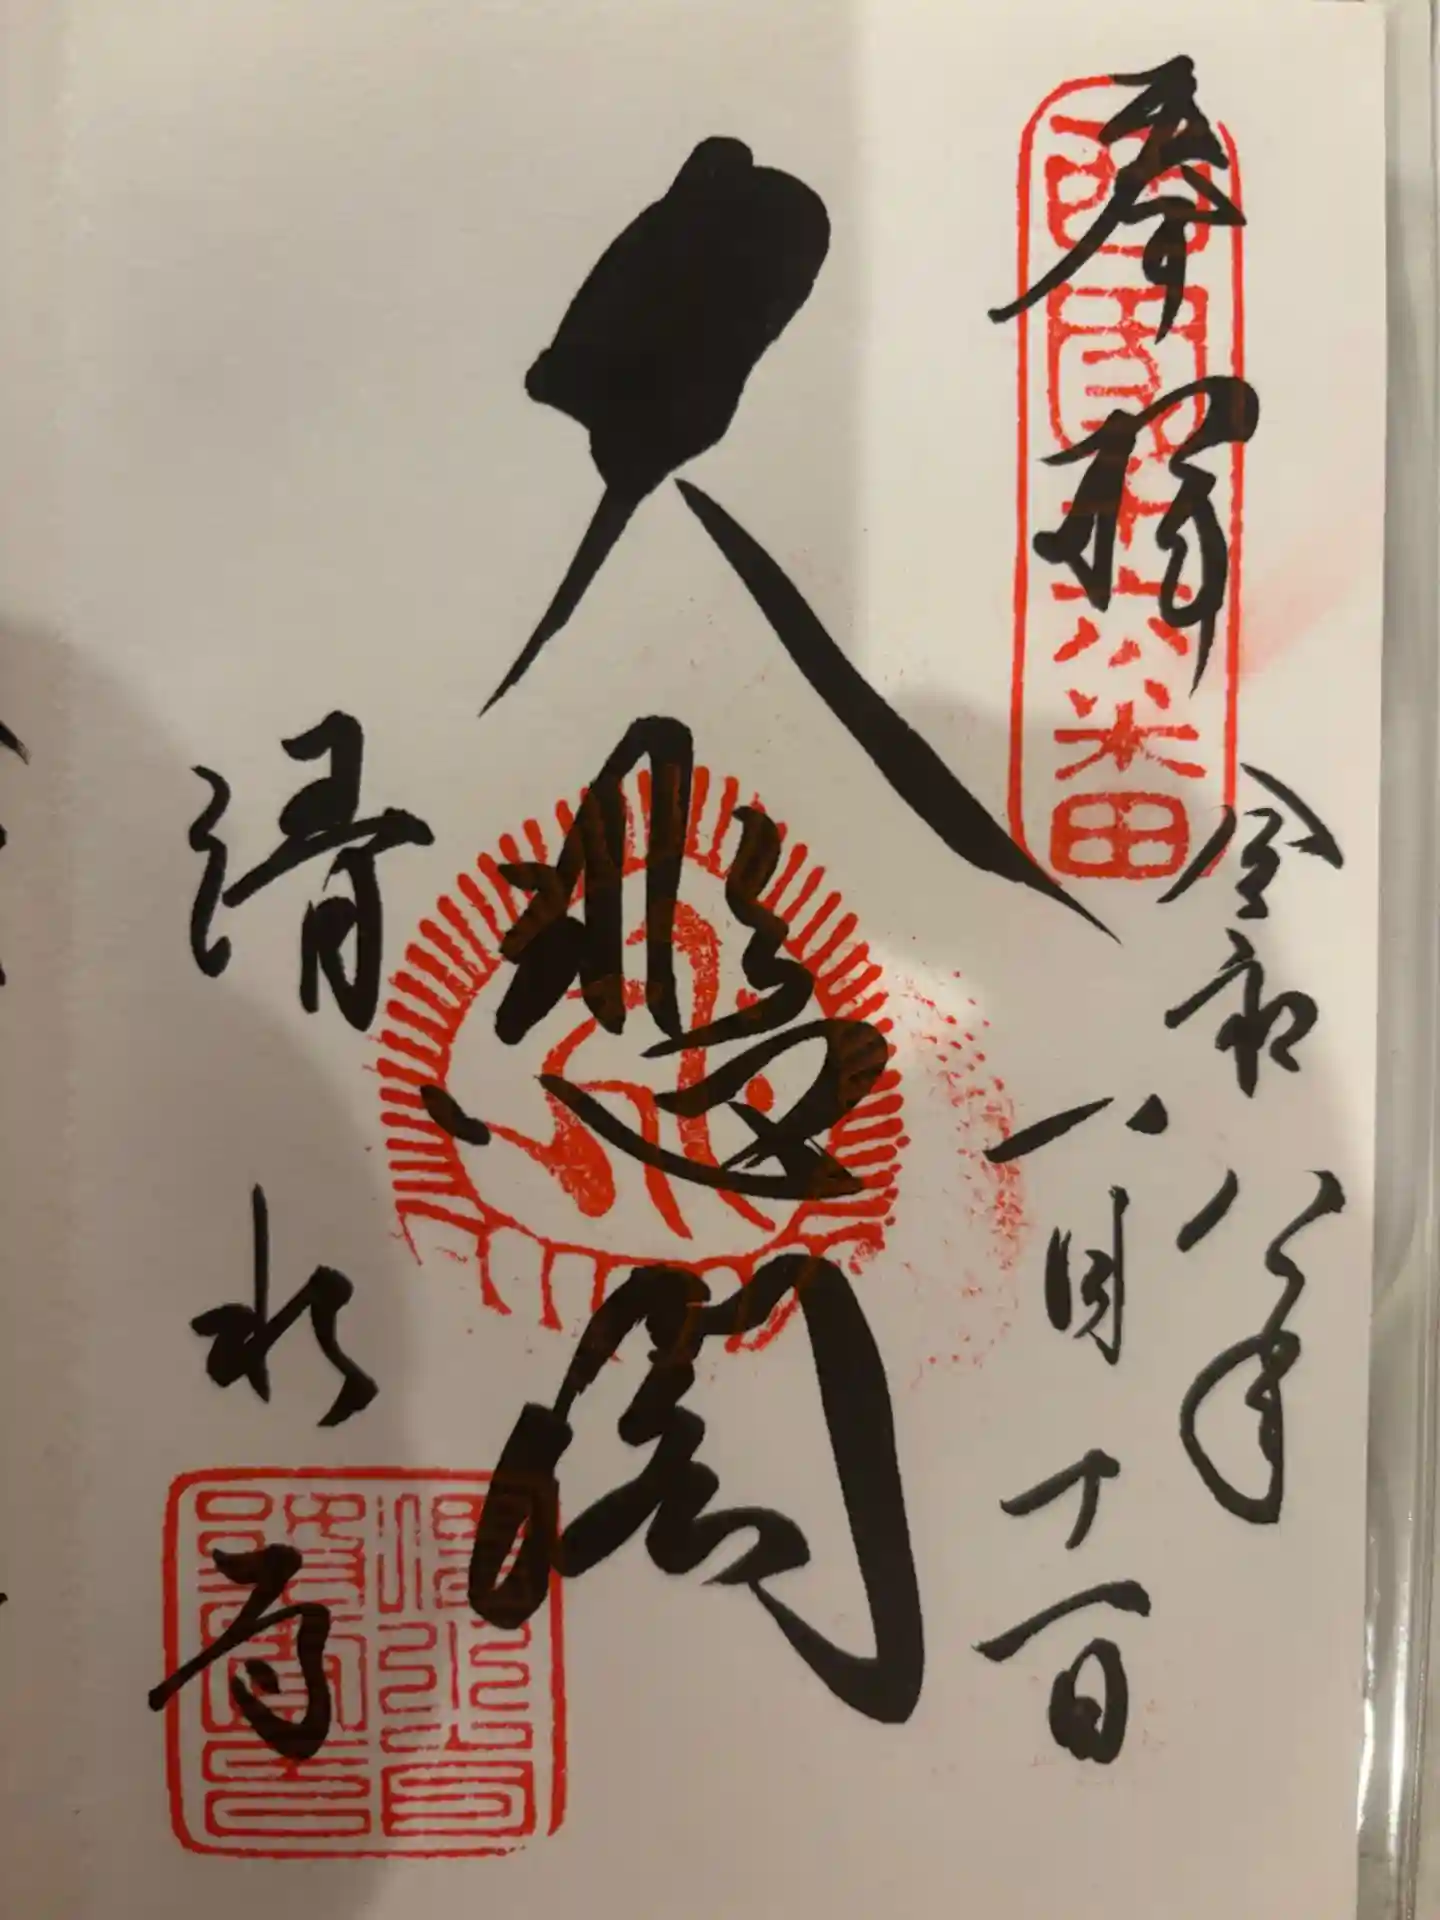 奉拝
西國十六番
令和八年
一月十一日
大悲閣
清水寺